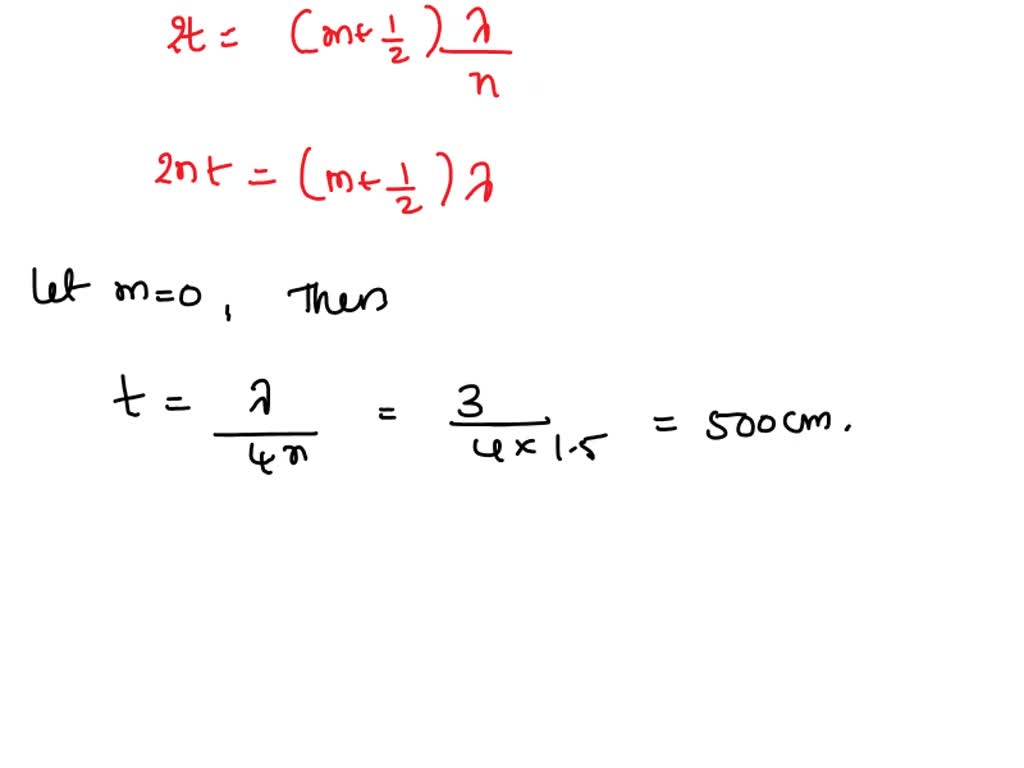 2t = (m+ 1/2) λ/n
2nt = (m+ 1/2) λ
Let m=0, Then
t = λ/4n = 3/4×1.5 = 500cm.